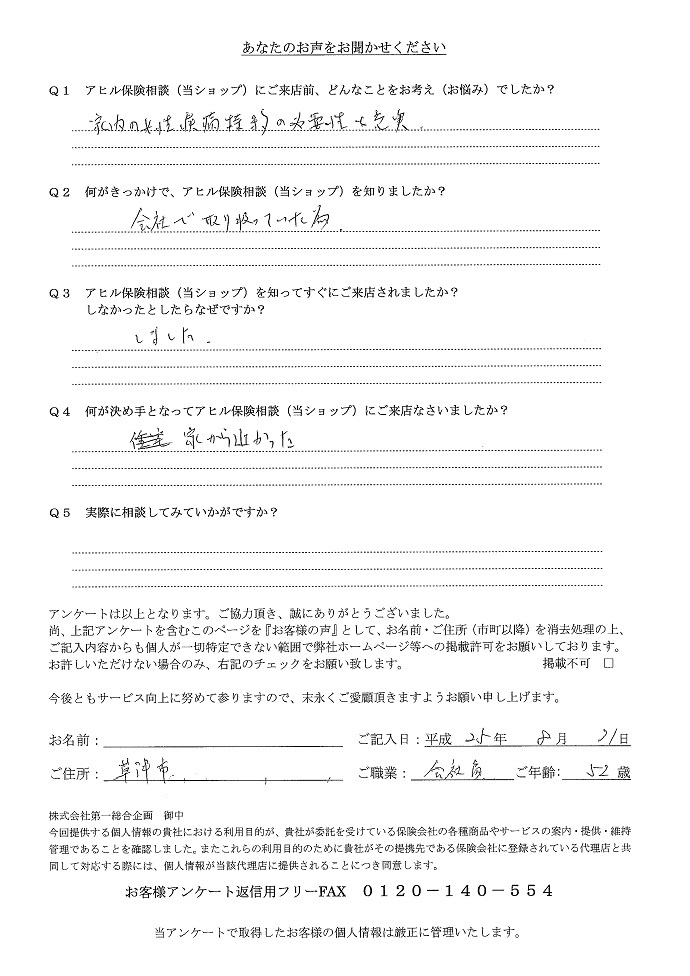 あなたのお声をお聞かせください
Q1　アヒル保険相談（当ショップ）にご来店前、どんなことをお考え（お悩み）でしたか？
家内の女性疾病特約の必要性と充実.
Q2　何がきっかけで、アヒル保険相談（当ショップ）を知りましたか？
会社で取り扱っていた為.
Q3　アヒル保険相談（当ショップ）を知ってすぐにご来店されましたか？
しなかったとしたらなぜですか？
しました.
Q4　何が決め手となってアヒル保険相談（当ショップ）にご来店なさいましたか？
家から近かった
Q5　実際に相談してみていかがですか？
アンケートは以上となります。ご協力頂き、誠にありがとうございました。
尚、上記アンケートを含むこのページを『お客様の声』として、お名前・ご住所（市町以降）を消去処理の上、
ご記入内容からも個人が一切特定できない範囲で弊社ホームページ等への掲載許可をお願いしております。
お許しいただけない場合のみ、右記のチェックをお願い致します。　掲載不可　□
今後ともサービス向上に努めて参りますので、末永くご愛顧頂きますようお願い申し上げます。
お名前：　ご記入日：平成 25年 8月 21日
ご住所：草津市　ご職業：会社員　ご年齢：52歳
株式会社第一総合企画　御中
今回提供する個人情報の貴社における利用目的が、貴社が委託を受けている保険会社の各種商品やサービスの案内・提供・維持
管理であることを確認しました。またこれらの利用目的のために貴社がその提携先である保険会社に登録されている代理店と共
同して対応する際には、個人情報が当該代理店に提供されることにつき同意します。
お客様アンケート返信用フリーFAX　0120－140－554
当アンケートで取得したお客様の個人情報は厳正に管理いたします。